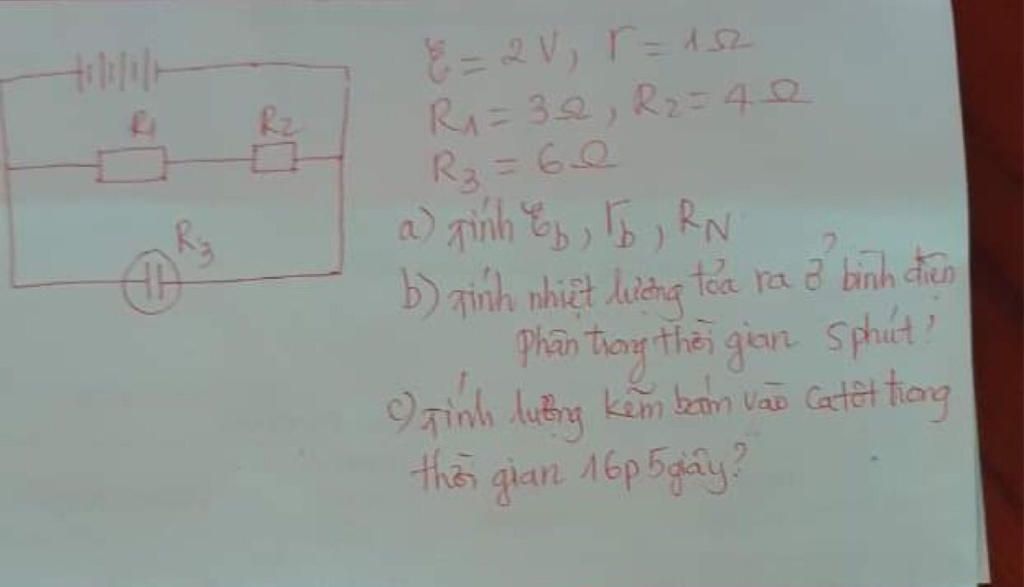 R1
R2
R3
ℰ = 2V, r = 1Ω
R1 = 3Ω, R2 = 4Ω
R3 = 6Ω
a) Tính ℰb, rb, RN
b) Tính nhiệt lượng tỏa ra ở bình điện
phân trong thời gian 5 phút?
c) Tính lượng kẽm bám vào Catốt trong
thời gian 16p 5giây?